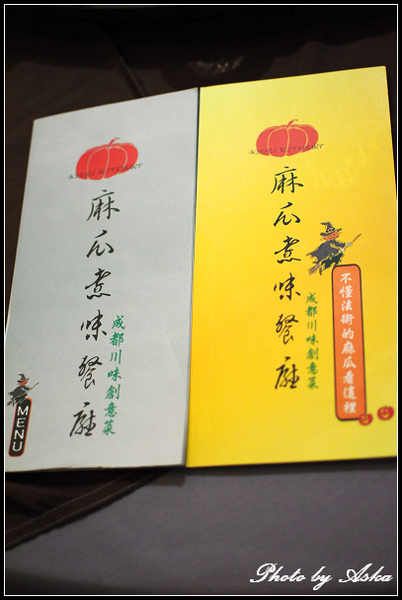 麻瓜煮味餐廳
成都川味創意菜
MENU
麻瓜煮味餐廳
成都川味創意菜
不懂法術的麻瓜看這裡
Photo by Aska